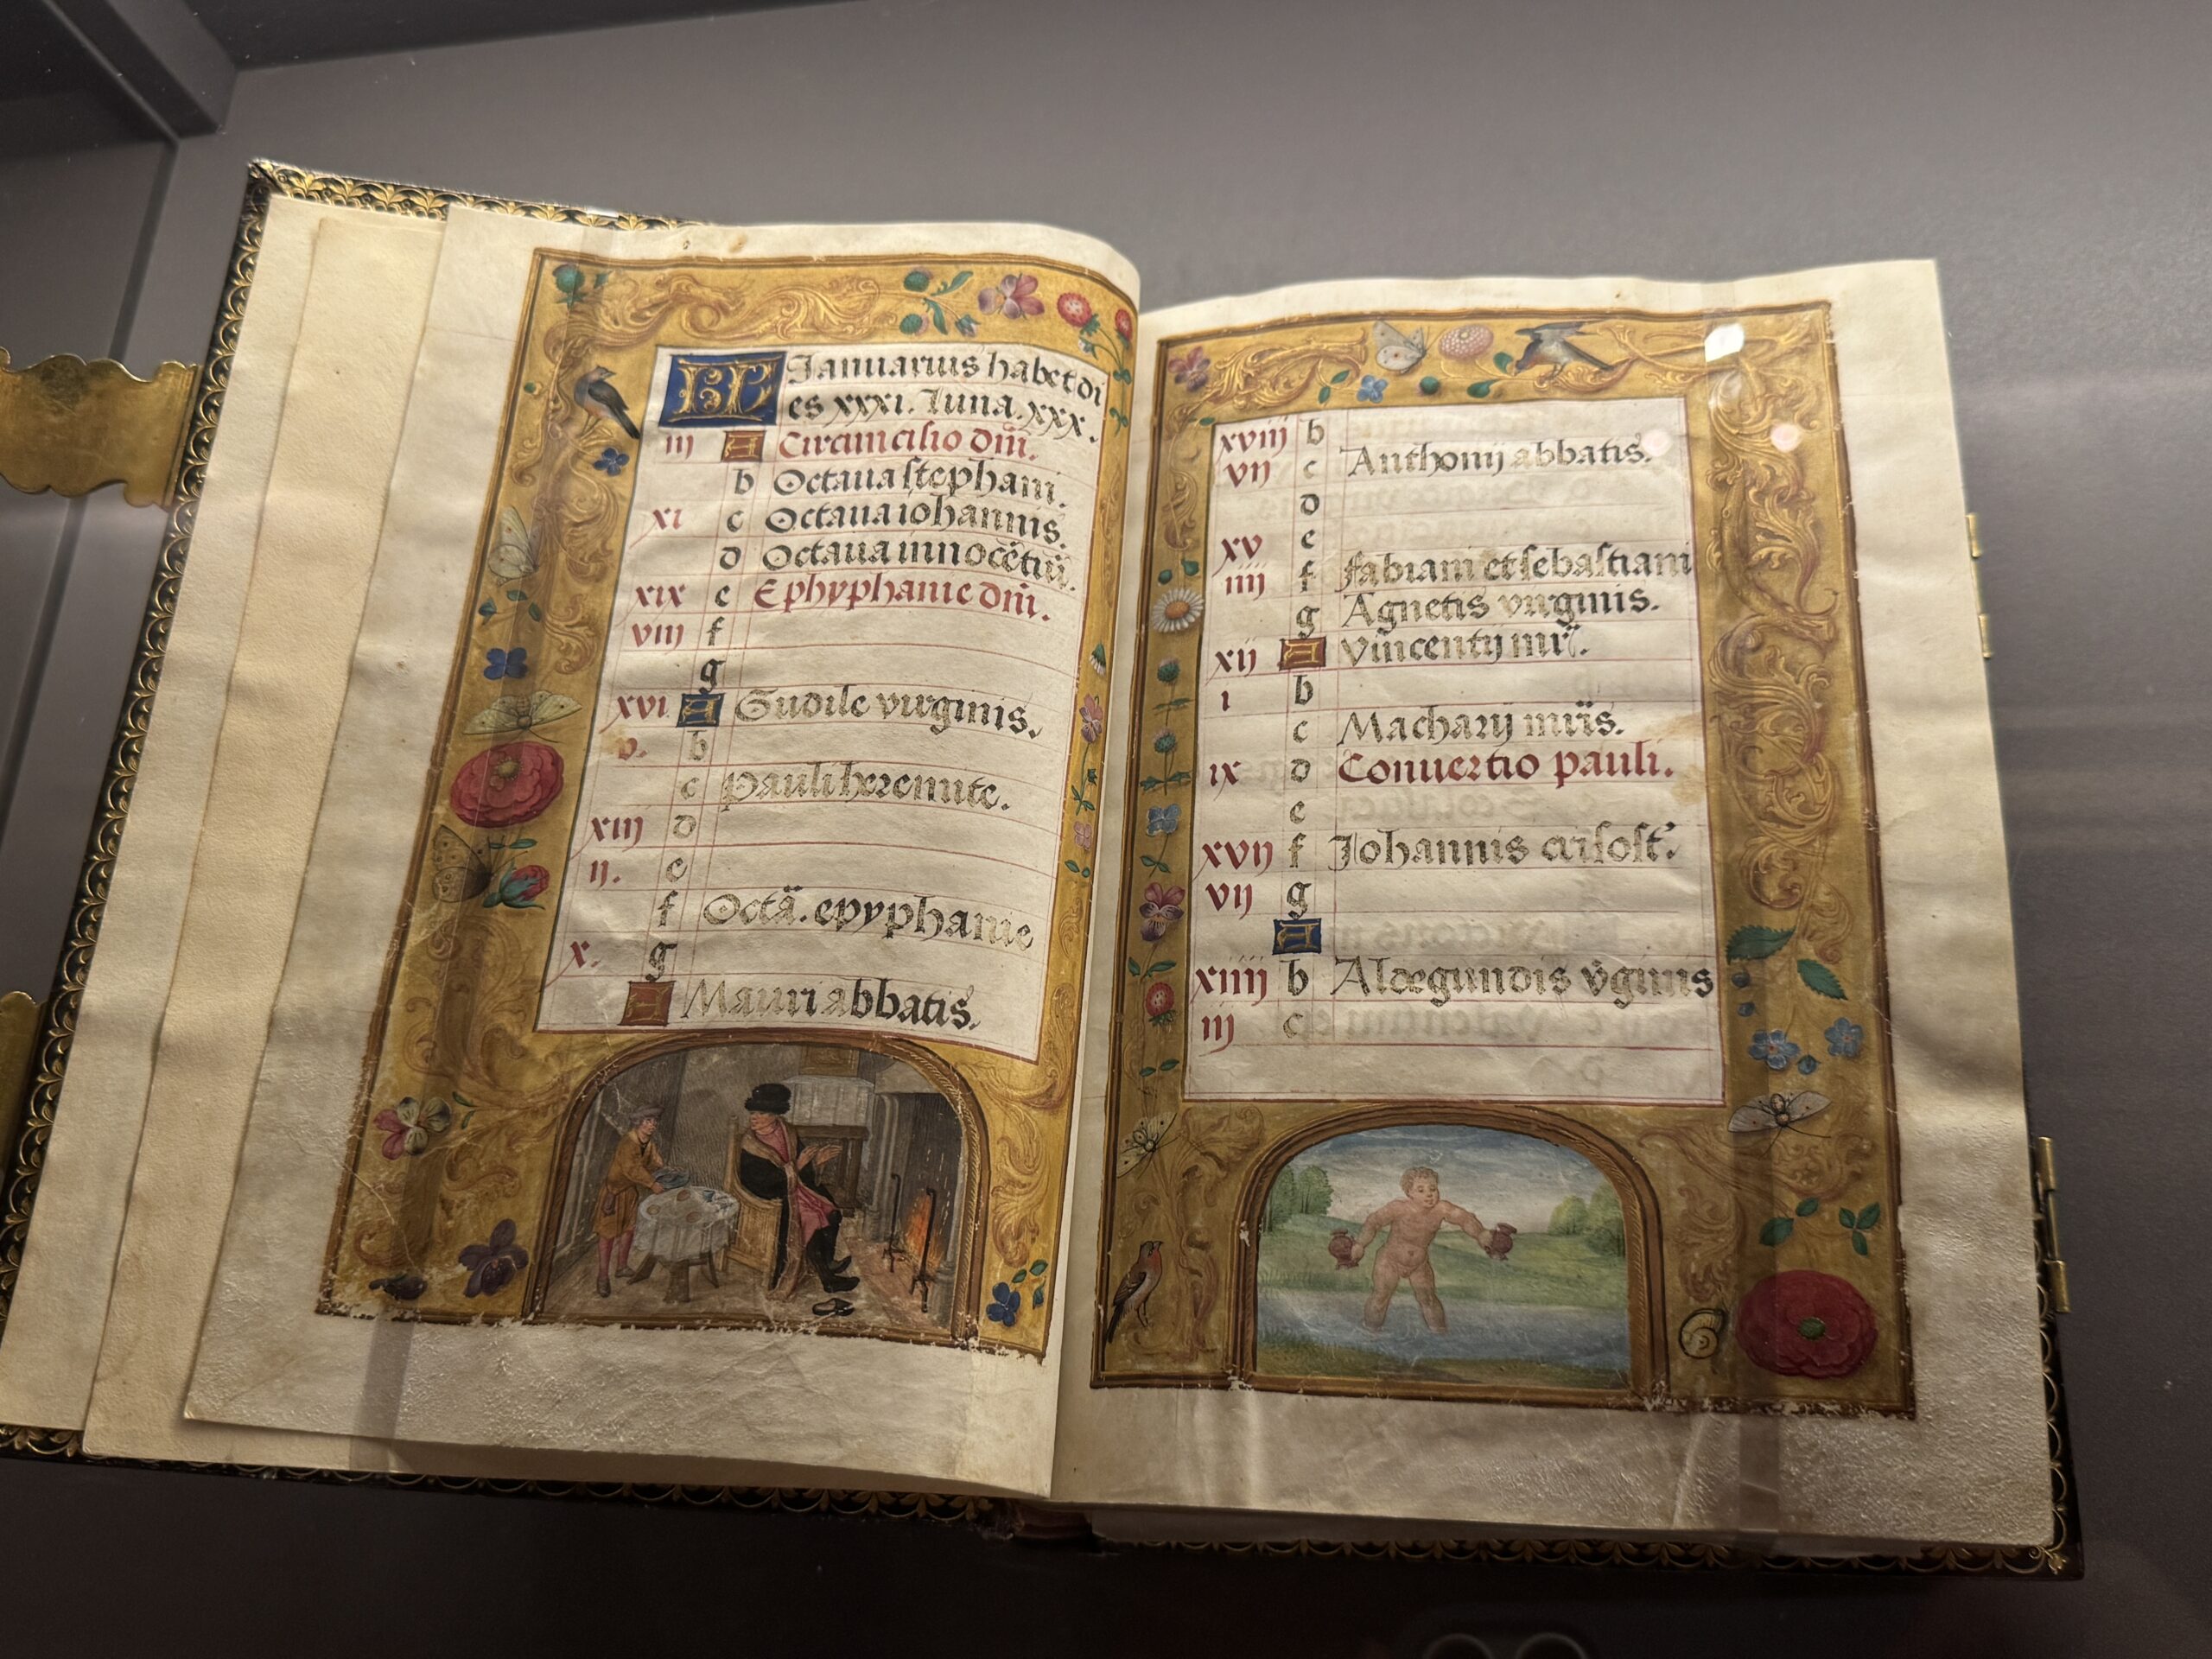 KL Januarius habet di
es xxxi. Luna. xxx.
iij A Circumcisio dñi.
b Octaua stephani.
xi c Octaua iohannis.
d Octaua innocētiū.
xix e Ephyphanie dñi.
viij f
g
xvi A Gudile virginis.
v. b
c Pauli heremite.
xiij d
ij. e
f Octā. epyphanie
x. g
A Mauri abbatis.
xviij b
vij c Anthonij abbatis.
d
xv e
iiij f fabiani et sebastiani
g Agnetis virginis.
xij A Vincentij mr̃.
i b
c Macharij mr̃is.
ix d Conuertio pauli.
e
xvij f Johannis crisost.
vij g
A
xiiij b Aldegundis v̄ginis
iij c